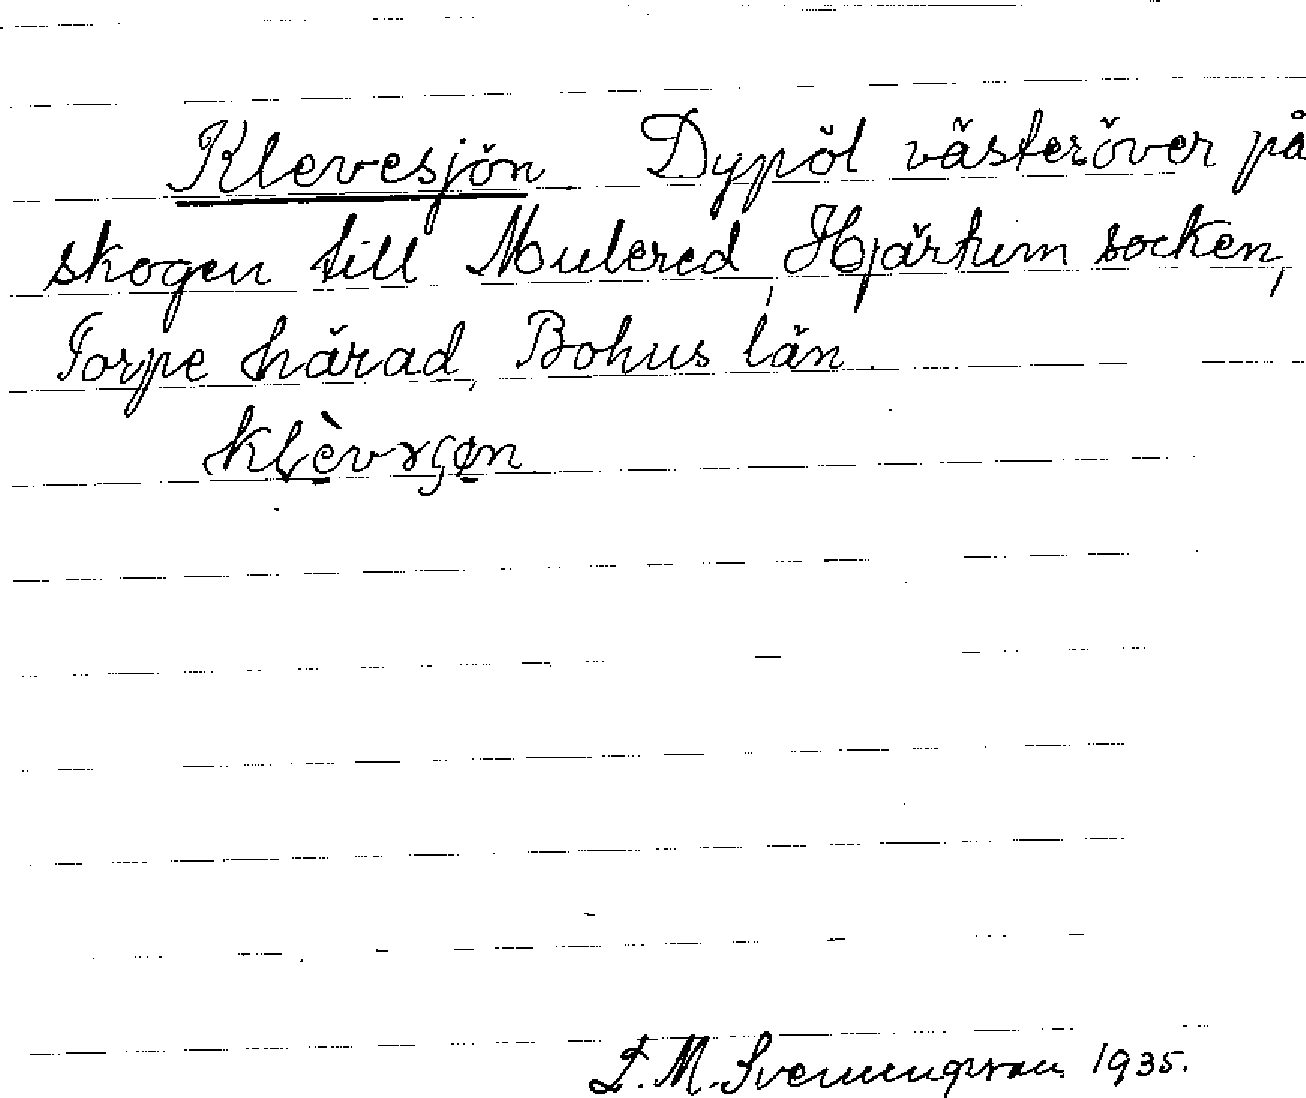 Klevesjön Dypöl västeröver på
skogen till Mulered, Hjärtum socken,
Torpe härad, Bohus län.
klèvrsøn
F. M. Svenungsson 1935.